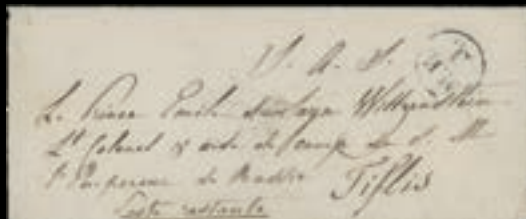 S. A. S.
Le Prince Emile Wittgenstein
Lt Colonel & aide de camp de S. M.
l'Empereur de Russie
Tiflis
Poste restante